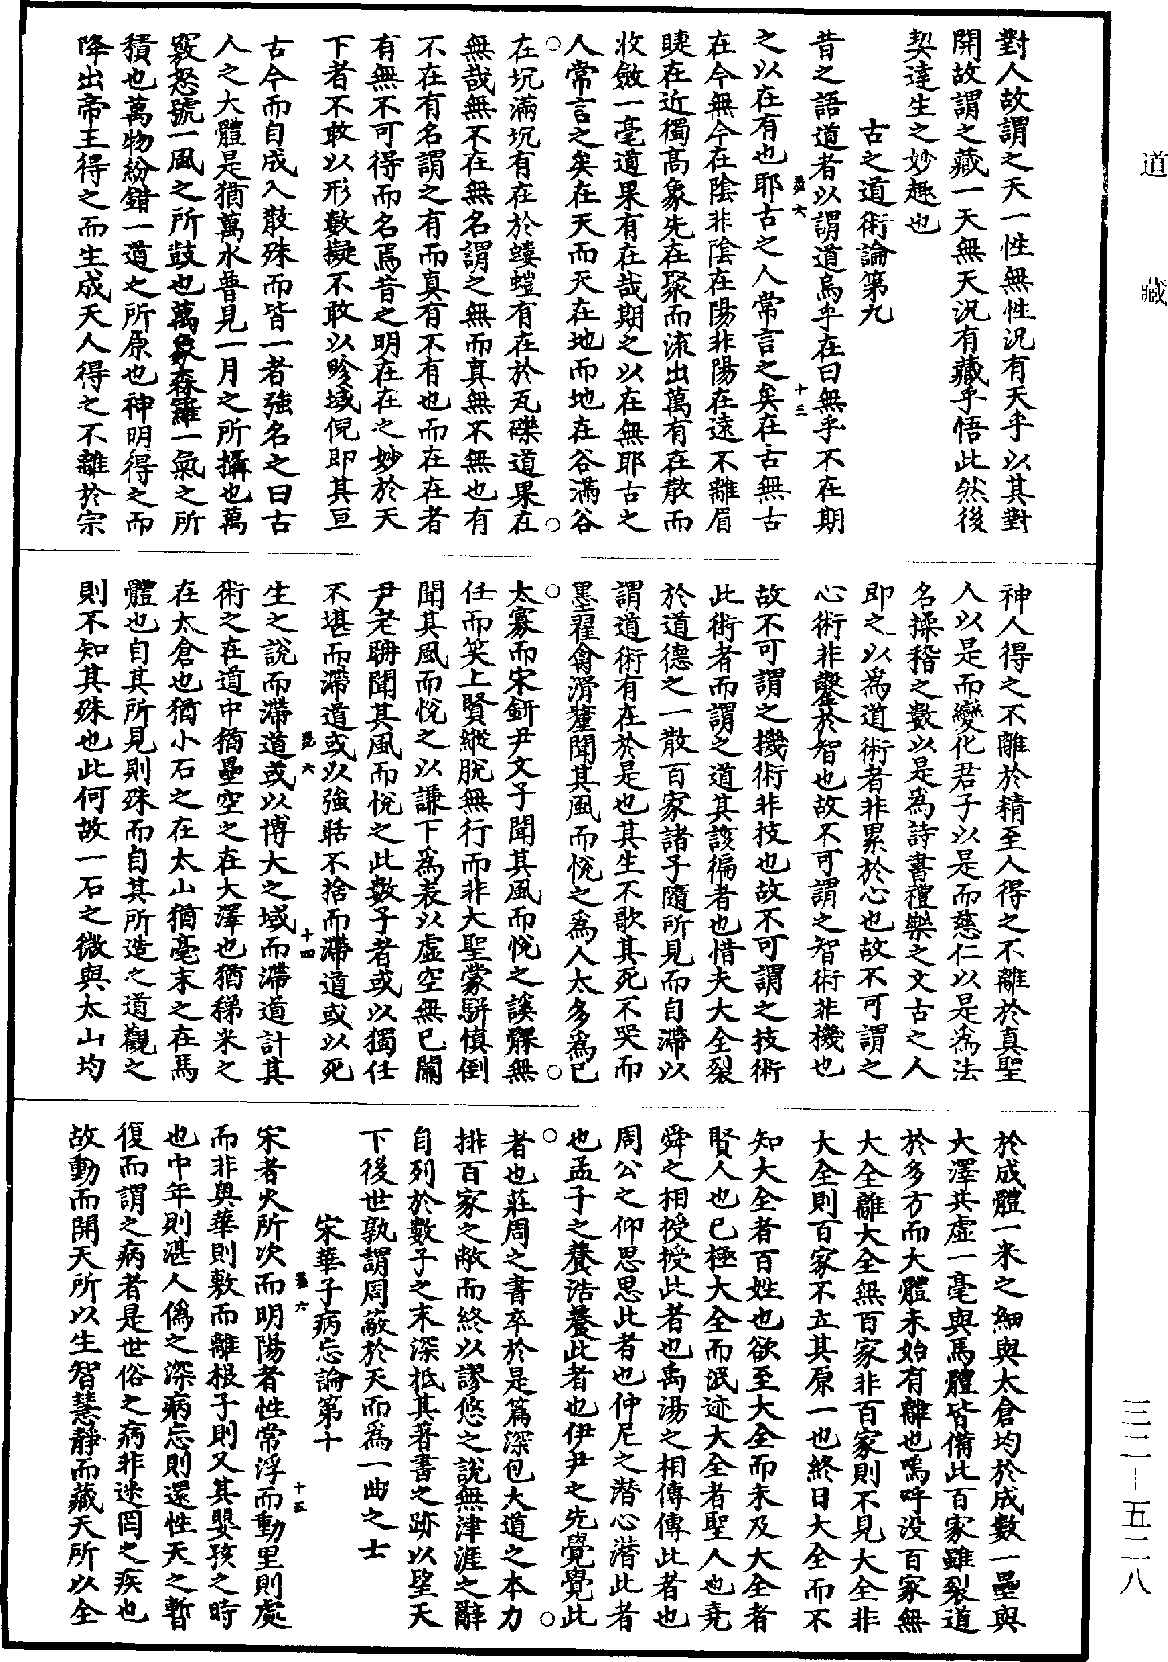 道藏
三二–五二八
對人故謂之天一性無性況有天乎以其對
開故謂之藏一天無天況有藏乎悟此然後
契達生之妙趣也
古之道術論第九
昔之語道者以謂道烏乎在曰無乎不在期
之以在有也耶古之人常言之矣在古無古
在今無今在陰非陰在陽非陽在遠不離眉
睫在近獨高象先在聚而流出萬有在散而
收斂一毫道果有在哉期之以在無耶古之
人常言之矣在天而天在地而地在谷滿谷
在坑滿坑有在於螻螘有在於瓦礫道果在
無哉無不在無名謂之無而真無不無也有
不在有名謂之有而真有不有也而在在者
有無不可得而名焉昔之明在在之妙於天
下者不敢以形數擬不敢以畛域倪即其亘
古今而自成入散殊而皆一者強名之曰古
人之大體是猶萬水普見一月之所攝也萬
竅怒號一風之所鼓也萬象森羅一氣之所
積也萬物紛錯一道之所原也神明得之而
降出帝王得之而生成天人得之不離於宗
神人得之不離於精至人得之不離於真聖
人以是而變化君子以是而慈仁以是為法
名操稽之數以是為詩書禮樂之文古之人
即之以為道術者非累於心也故不可謂之
心術非鑿於智也故不可謂之智術非機也
故不可謂之機術非技也故不可謂之技術
此術者而謂之道其該徧者也惜夫大全裂
於道德之一散百家諸子隨所見而自滯以
謂道術有在於是也其生不歌其死不哭而
墨翟禽滑釐聞其風而悅之為人太多為己
太寡而宋鈃尹文子聞其風而悅之謑髁無
任而笑上賢縱脫無行而非大聖蒙駢慎倒
聞其風而悅之以謙下為表以虛空無已關
尹老聃聞其風而悅之此數子者或以獨任
不堪而滯道或以強聒不捨而滯道或以死
生之說而滯道或以博大之域而滯道計其
術之在道中猶壘空之在大澤也猶稊米之
在太倉也猶小石之在太山猶毫末之在馬
體也自其所見則殊而自其所造之道觀之
則不知其殊也此何故一石之微與太山均
於成體一米之細與太倉均於成數一壘與
大澤其虛一毫與馬體皆備此百家雖裂道
於多方而大體未始有離也嗚呼沒百家無
大全離大全無百家非百家則不見大全非
大全則百家不立其原一也終日大全而不
知大全者百姓也欲至大全而未及大全者
賢人也已極大全而泯迹大全者聖人也堯
舜之相授授此者也禹湯之相傳傳此者也
周公之仰思思此者也仲尼之潛心潛此者
也孟子之養浩養此者也伊尹之先覺覺此
者也莊周之書卒於是篇深包大道之本力
排百家之敝而終以謬悠之說無津涯之辭
自列於數子之末深抵其著書之跡以望天
下後世孰謂周蔽於天而為一曲之士
宋華子病忘論第十
宋者火所次而明陽者性常浮而動里則處
而非奧華則敷而離根子則又其嬰孩之時
也中年則湛人偽之深病忘則還性天之暫
復而謂之病者是世俗之病非迷罔之疾也
故動而開天所以生智慧靜而藏天所以全